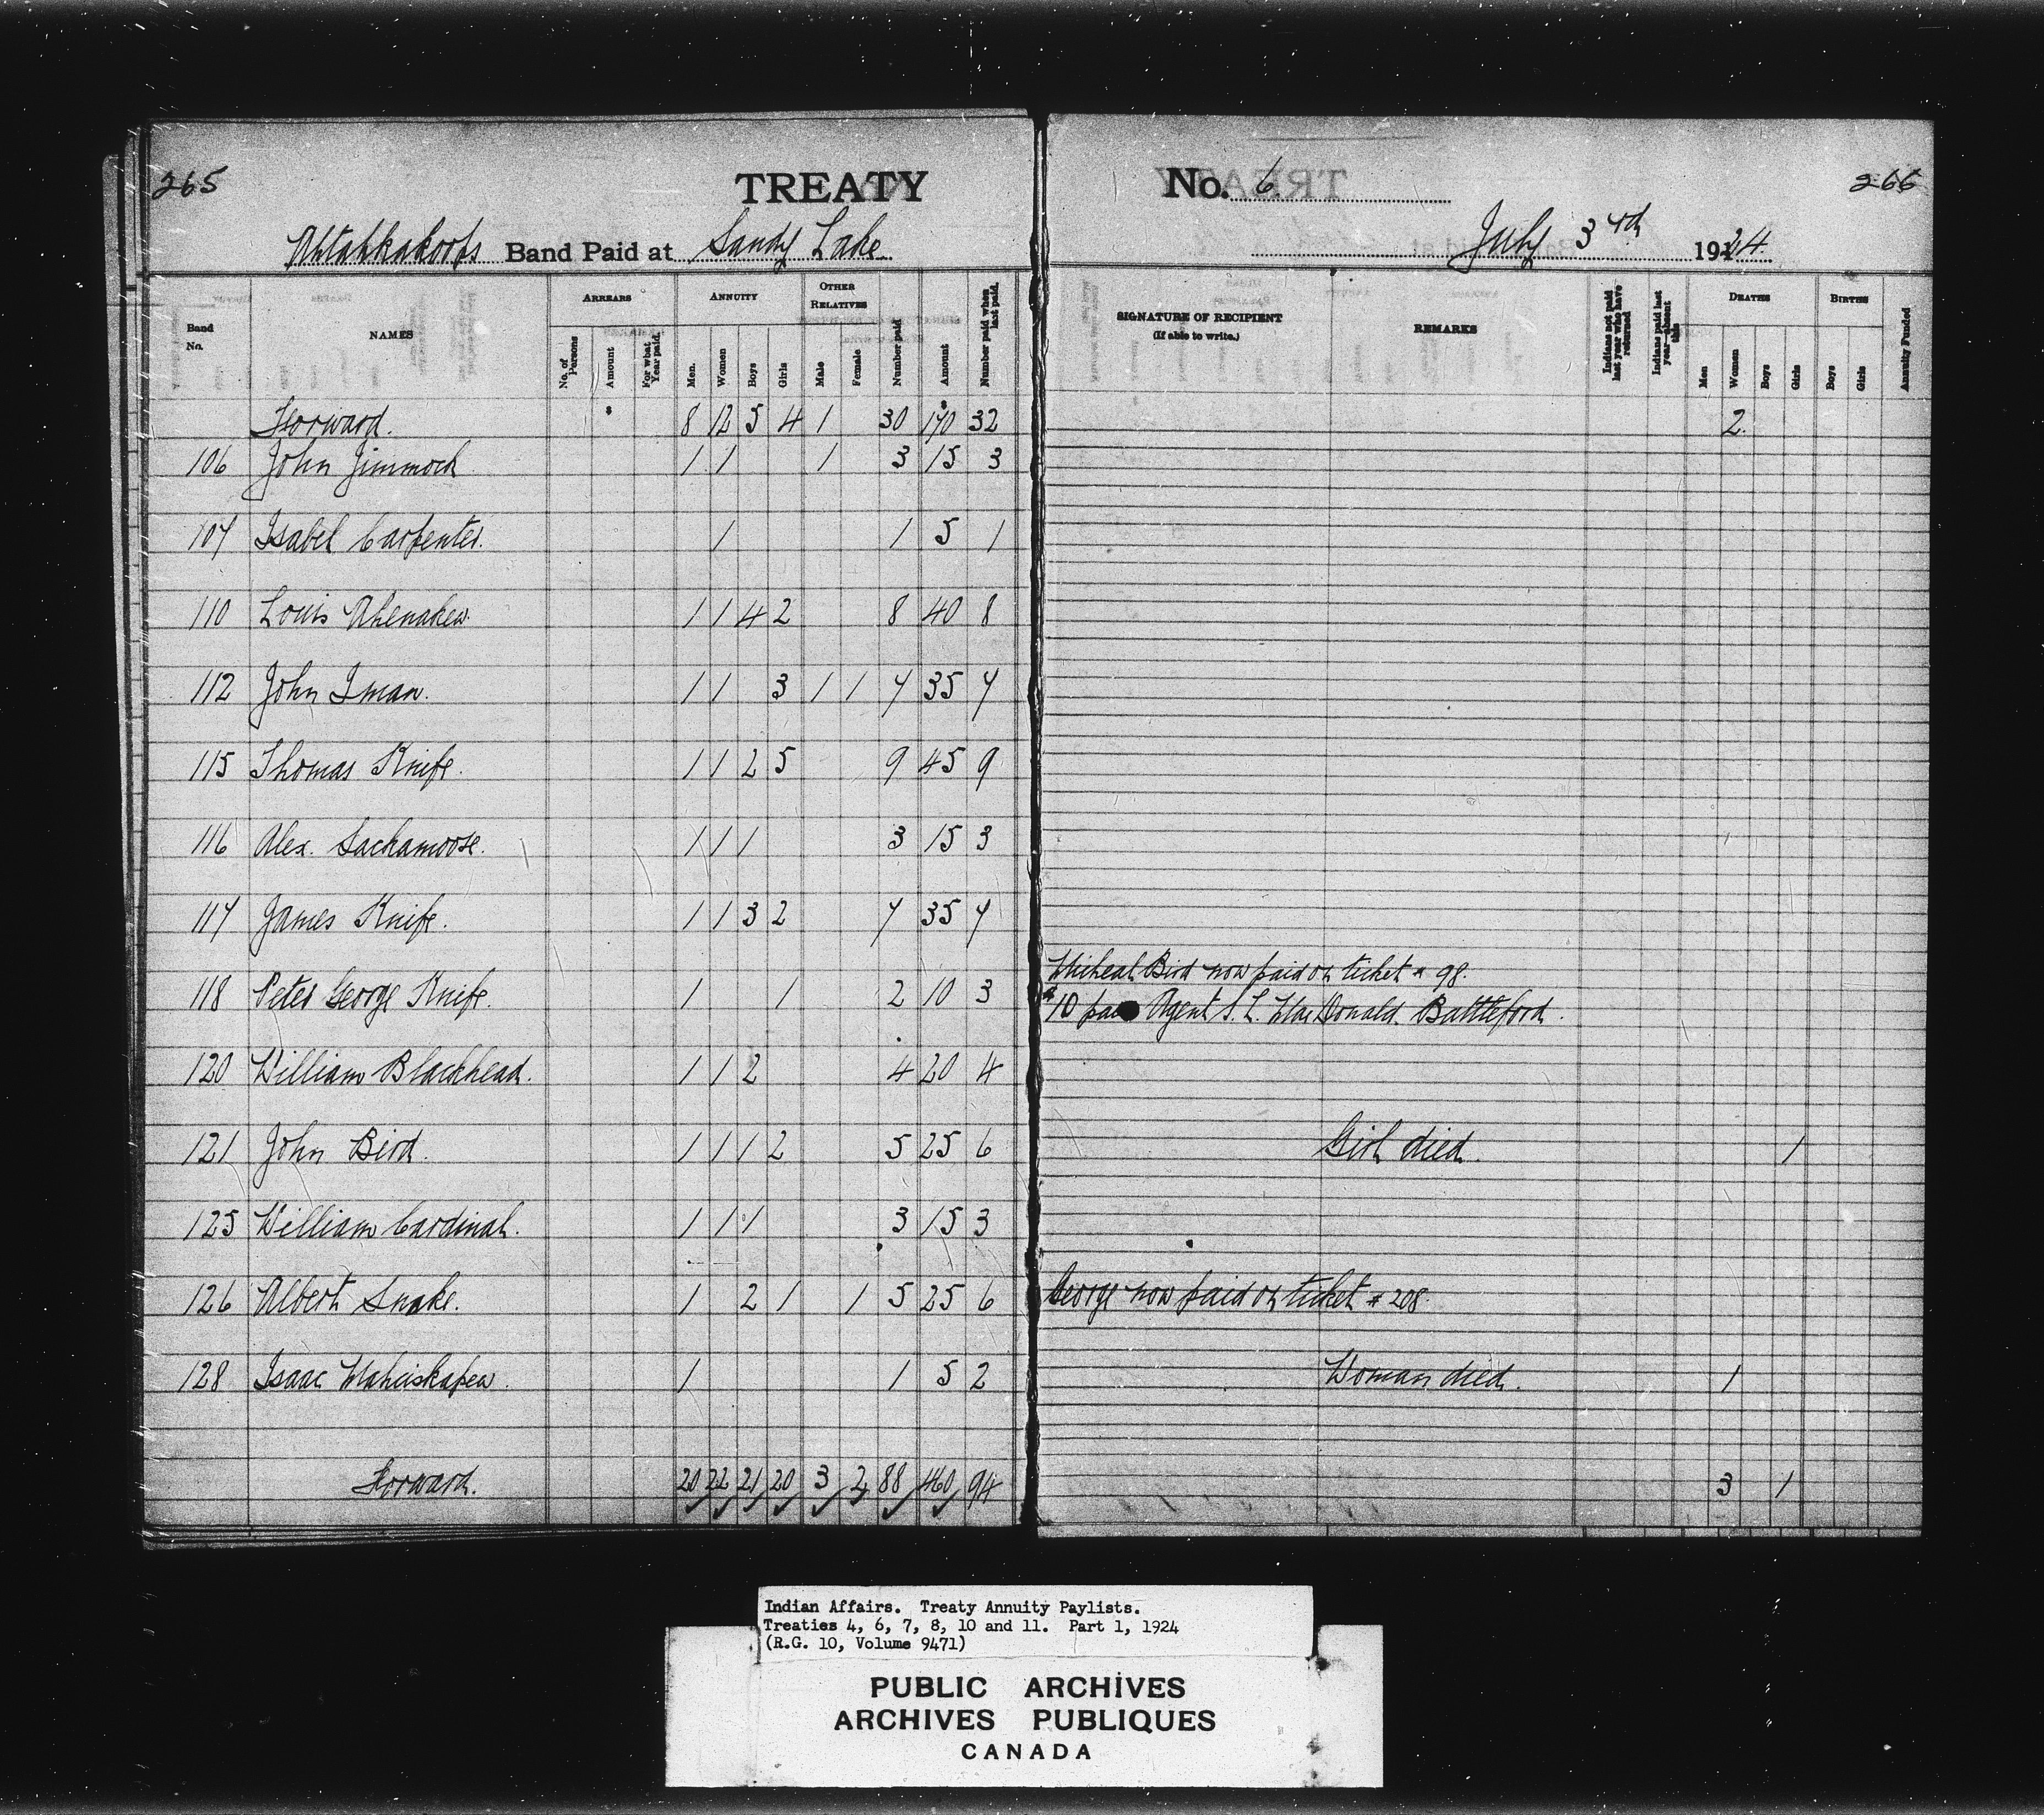 265
TREATY No. 6. 266
Ahtahkakoops Band Paid at Sandy Lake July 3rd 1924.
Band No. NAMES ARREARS No. of Persons Amount For what Year paid ANNUITY Men. Women Boys Girls OTHER RELATIVES Male Female Number paid Amount Number paid when last paid. SIGNATURE OF RECIPIENT (If able to write.) REMARKS Indians not paid last year who have returned Indians paid last year—absent this DEATHS Men Women Boys Girls BIRTHS Boys Girls Annuity Funded
Forward. 8 12 5 4 1 30 170 32 2
106 John Jimmock 1 1 1 3 15 3
107 Isabel Carpenter. 1 1 5 1
110 Louis Ahenakew. 1 1 4 2 8 40 8
112 John Iman. 1 1 3 1 1 7 35 7
115 Thomas Knife. 1 1 2 5 9 45 9
116 Alex. Sackamoose. 1 1 1 3 15 3
117 James Knife. 1 1 3 2 7 35 7
Micheal Bird now paid on ticket # 98.
118 Peter George Knife. 1 1 2 10 3 $10 Agent S. L. MacDonald. Battleford.
120 William Blackhead. 1 1 2 4 20 4
121 John Bird. 1 1 1 2 5 25 6 Girl died. 1
125 William Cardinal. 1 1 1 3 15 3
126 Albert Snake. 1 2 1 1 5 25 6 George now paid on ticket # 208.
128 Isaac 1 1 5 2 Woman died. 1
Forward. 20 22 21 20 3 2 88 460 94 3 1
Indian Affairs. Treaty Annuity Paylists.
Treaties 4, 6, 7, 8, 10 and 11. Part 1, 1924
(R.G. 10, Volume 9471)
PUBLIC ARCHIVES
ARCHIVES PUBLIQUES
CANADA